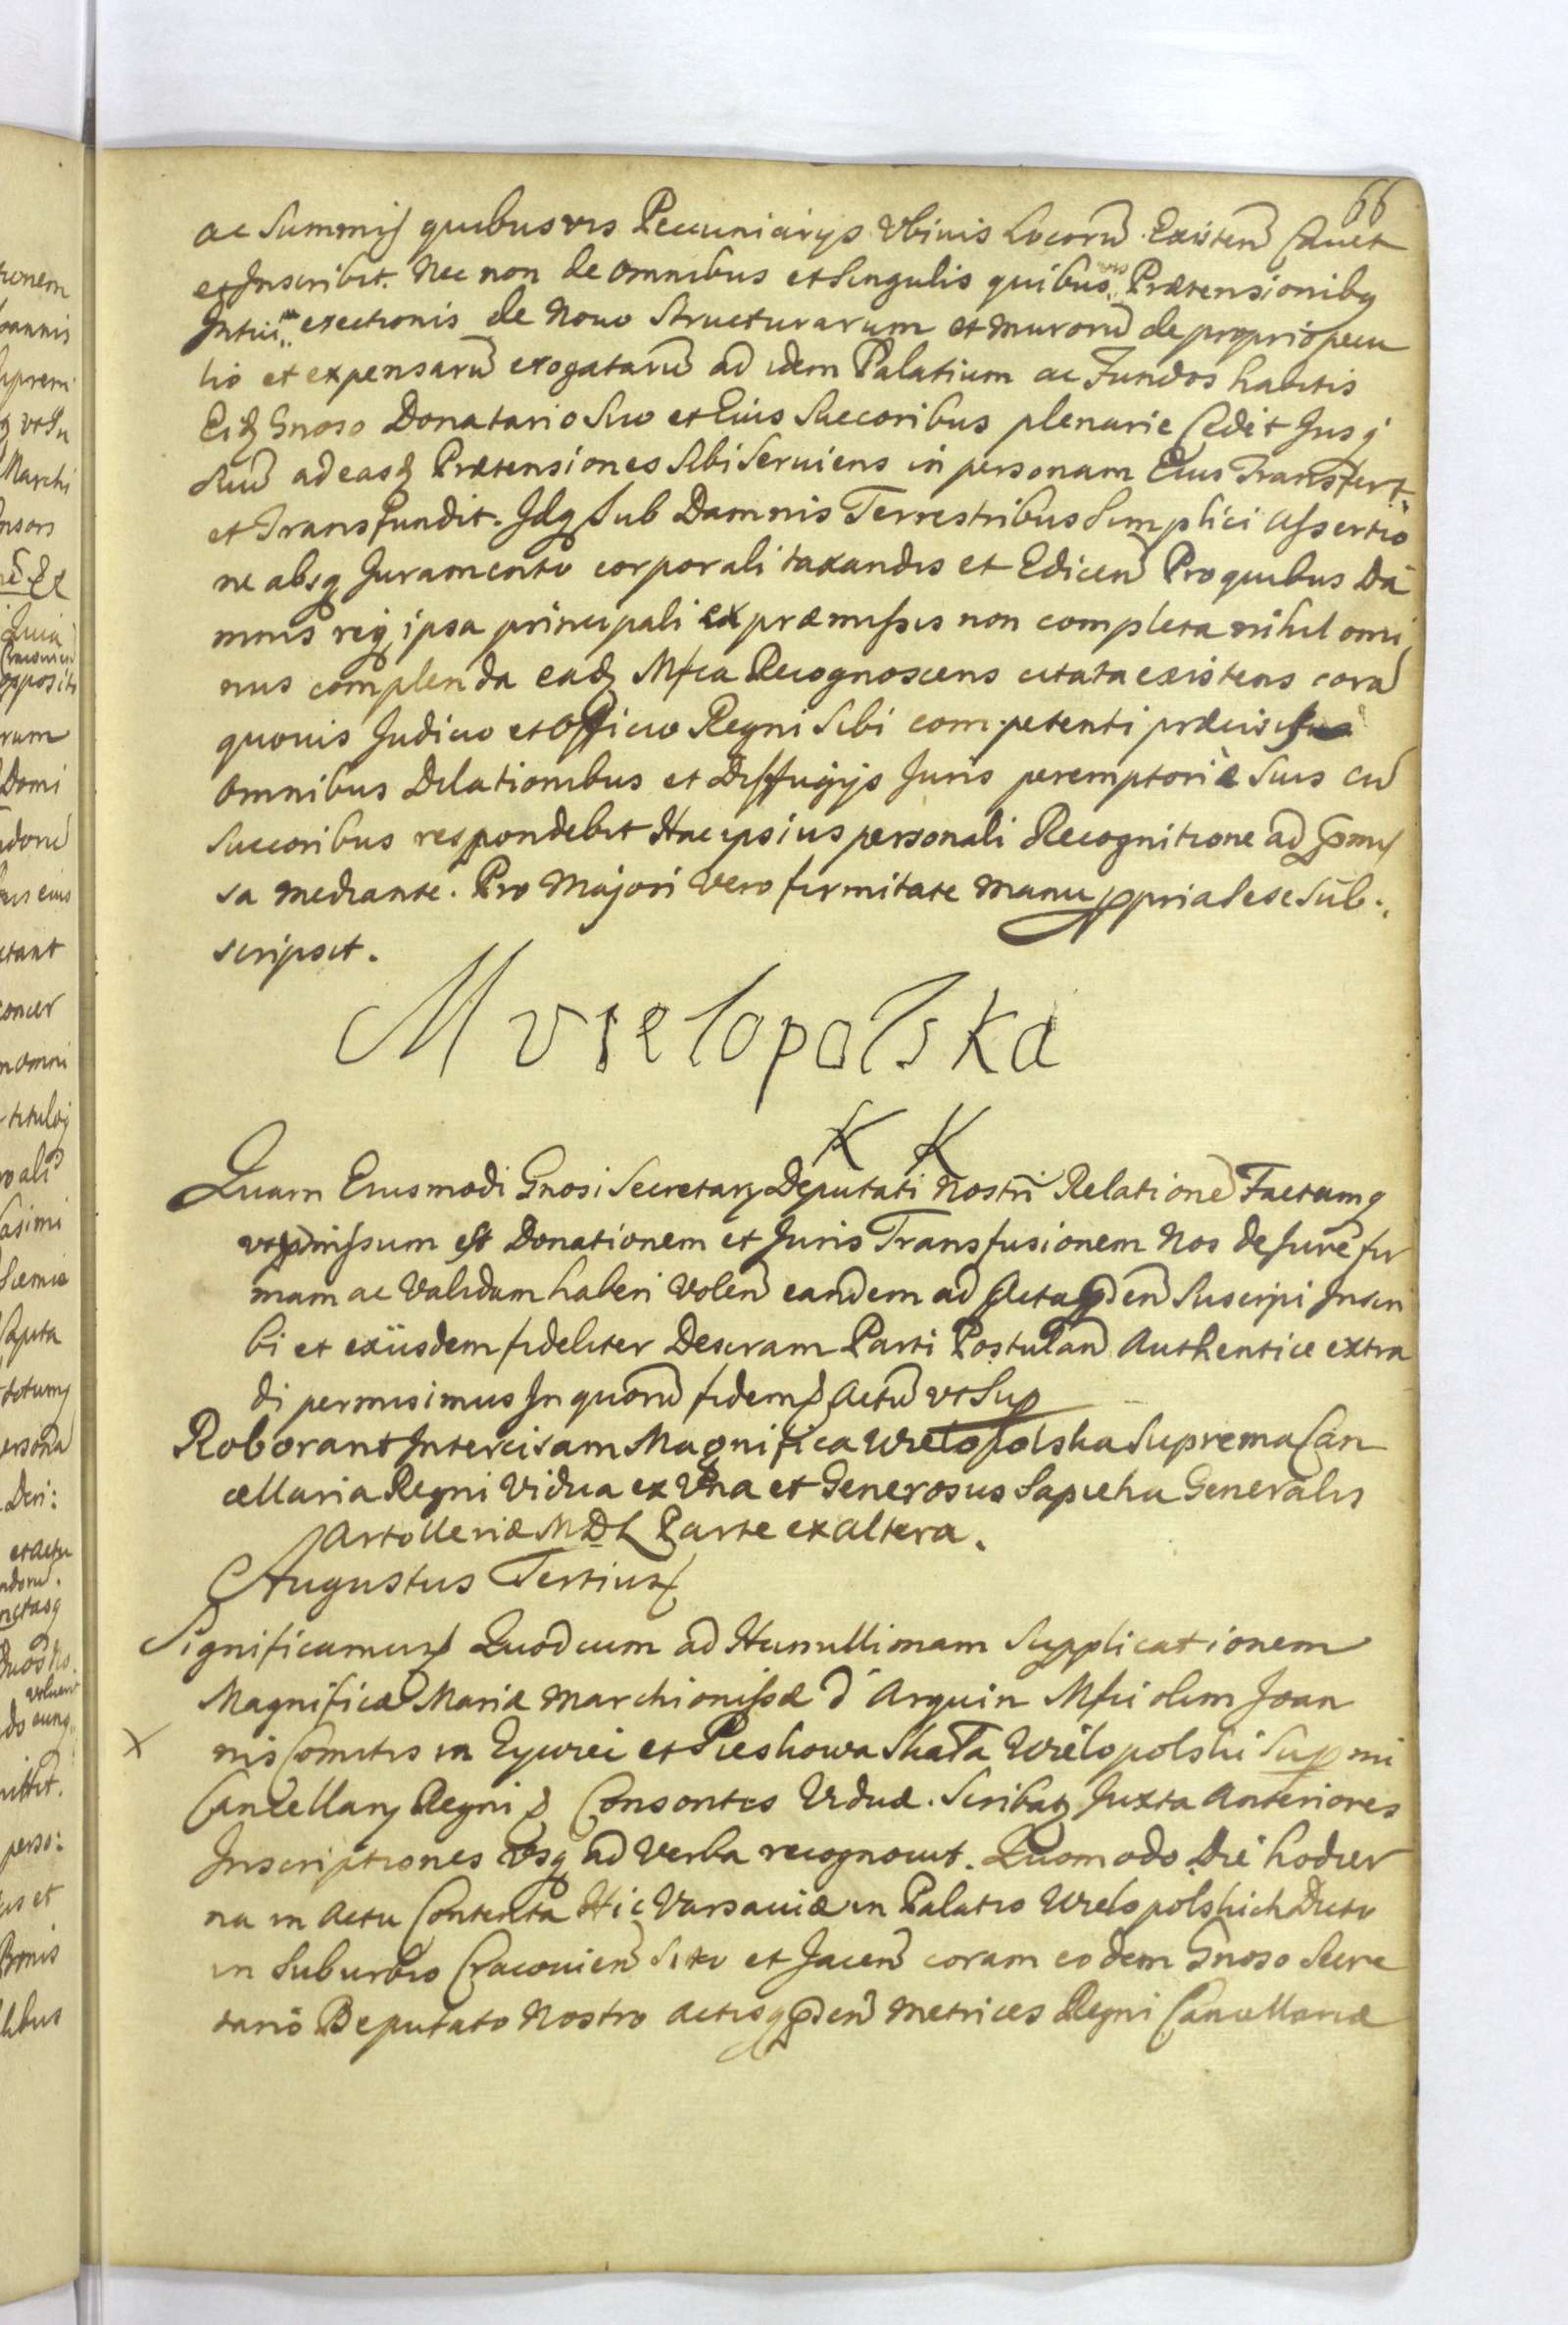 66
ac Summis quibusvis Pecuniarys Ubivis Locorũ Existeñ Cavet
et Inscribit. Nec non de omnibus et Singulis quibusvis Prætensionibq
Intui erectionis de Novo Structurarum et murorũ de proprio pecu
lio et expensarũ erogatarũ ad idem Palatium ac Fundos habitis
Eidq Gnoso Donatario Suo et Eius Succoribus plenarie Cedit Jusq
Suũ ad easq Prætensiones Sibi Serviens in personam Eius Transfert
et Transfundit. Idq Sub Damnis Terrestribus Simplici Assertio
ne absq Juramento corporali taxandis et Ediceñ Pro quibus Da
mnis req ipsa principali ex præmissis non completa nihil omi
nus complenda eadq Mfca Recognoscens citata existens corã
quovis Judicio et Officio Regni Sibi competenti præcisis
omnibus Dilationibus et Diffugijs Juris peremptorie Suis cũ
Succoribus respondebit Hac ipsius personali Recognitione ad præmis
sa mediante. Pro Majori vero firmitate manu ppria Sese Sub
scripsit.
M vielopolska
K K
Quam Eiusmodi Gnosi Secretarij Deputati Nostri Relationẽ Factamq
ut pmissum est Donationem et Juris Transfusionem Nos de Jure fir
mam ac Validam haberi Voleñ eandem ad Acta pñdeñ Suscipi Inscri
bi et exiisdem fideliter Descram Parti Postulañ Authentice extra
di permisimus In quorũ fidem Actũ ut Sup
Roborant Intercisam Magnifica Wielopolska Suprema Can
cellaria Regni Vidua ex Una et Generosus Sapieha Generalis
Artolleriæ M D L Parte ex altera.
Augustus Tertius
Significamus Quod cum ad Humillimam Supplicationem
Magnificæ Mariæ Marchionissæ d'Arquin Mfci olim Joan
x nis Comitis in Zywiec et Pieskowa Skała Wielopolski Supmi
Cancellarij Regni Consortis Viduæ. Scribatq Juxta Anteriores
Inscriptiones Usq ad Verba recognovit. Quomodo Die hodier
na in Actu Contenta Hic Varsaviæ in Palatio Wielopolskich Dicto
in Suburbio Cracovieñ Sito et Jaceñ coram eodem Gnoso Secre
tario Deputato Nostro Actisq pñdeñ Metrices Regni Cancellariæ